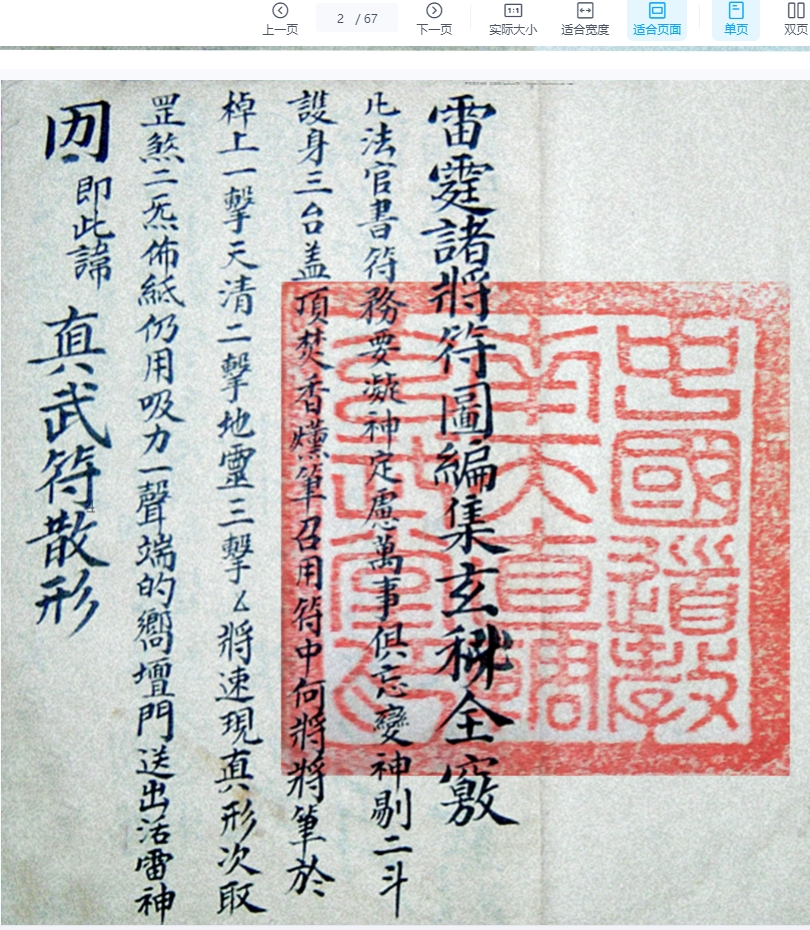 上一页
2 / 67
下一页
实际大小
适合宽度
适合页面
单页
双页
雷霆諸將符圖編集玄秘全竅
凡法官書符務要凝神定慮萬事俱忘變神剔二斗
護身三台盖頂焚香燻筆召用符中何將將筆於
棹上一擊天清二擊地靈三擊厶將速現真形次取
罡煞二炁佈紙仍用吸力一聲端的嚮壇門送出活雷神
即此諱
真武符散形